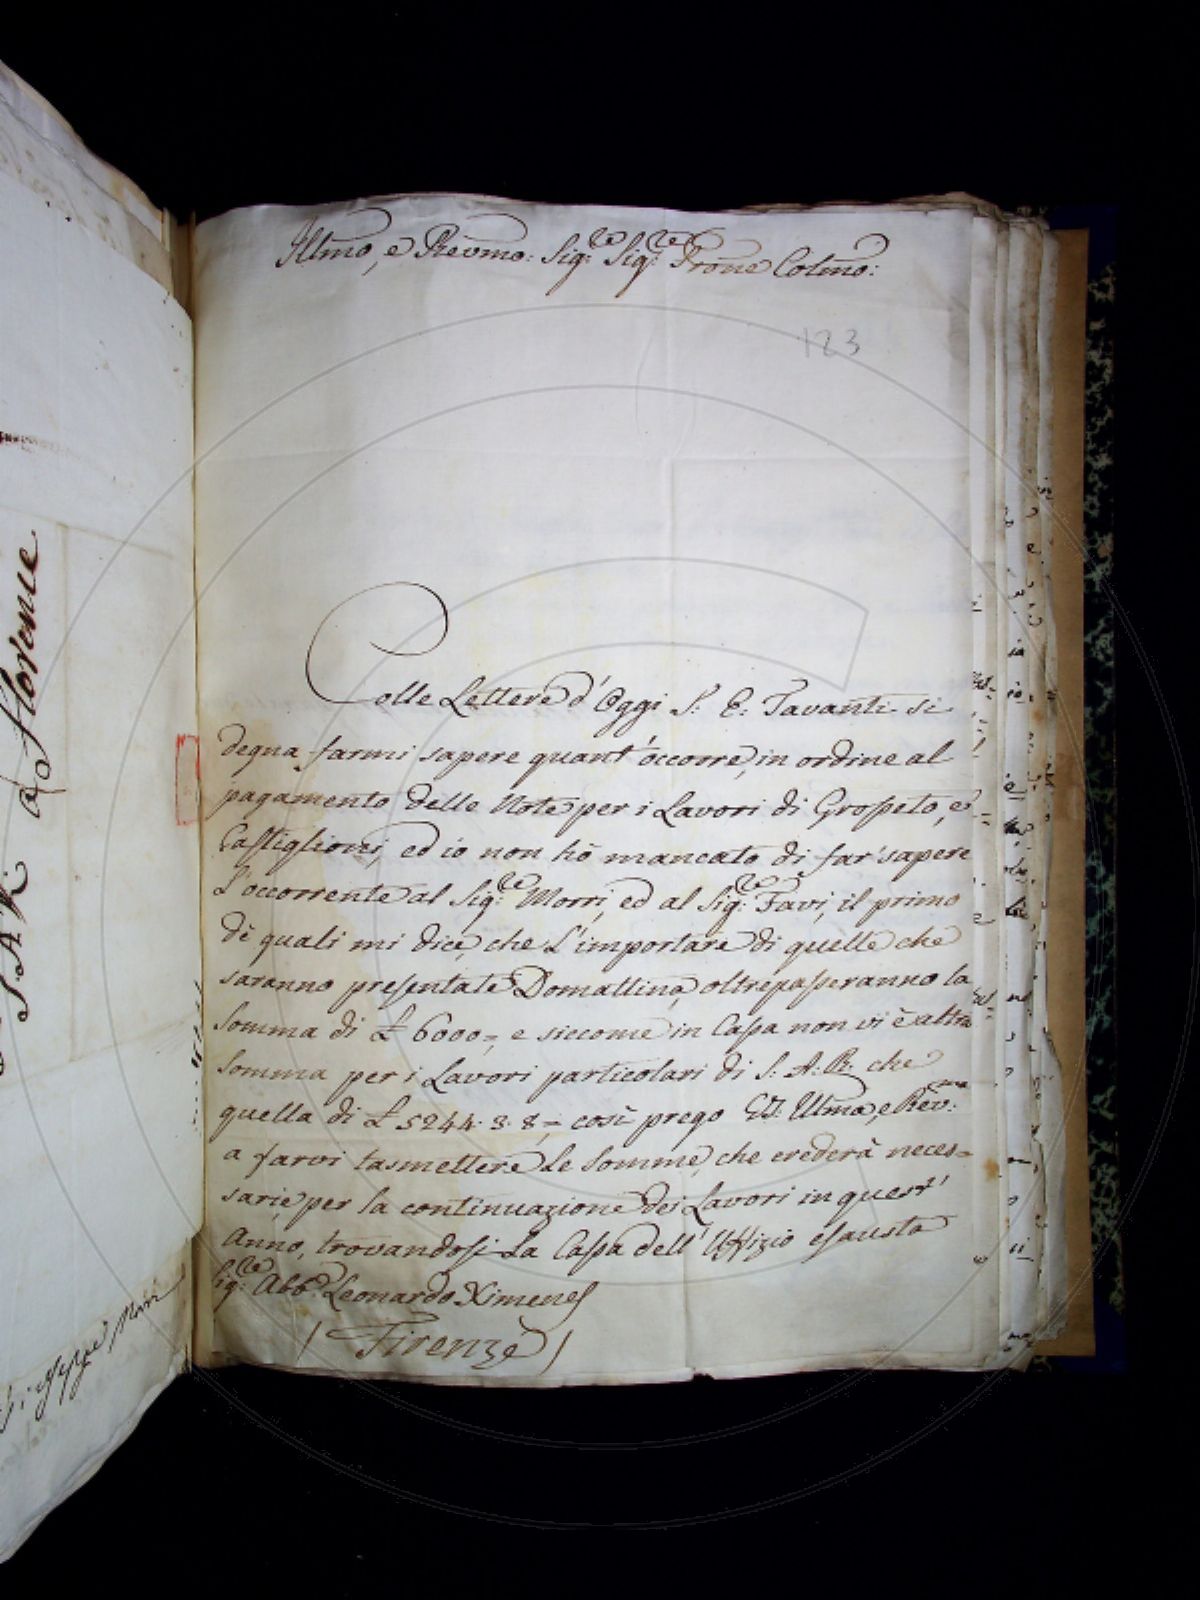 Illmo, e Revmo: Sig:re Sig:re Prone Colmo:
123
Colle Lettere d'Oggi S: E: Tavanti si
degna farmi sapere quant'occorre, in ordine al
pagamento delle Note per i Lavori di Grosseto, e
Castiglioni, ed io non hò mancato di far sapere
L'occorrente al Sig:re Morri, ed al Sig:re Favi, il primo
dè quali mi dice, che L'importare di quelle che
saranno presentate Domattina, oltrepasseranno la
Somma di £ 6000=, e siccome in Cassa non vi è altra
Somma per i Lavori particolari di S: A: R: che
quella di £ 5244. 3. 8,= così prego V.S. Illma, e Rev:ma
a farvi tasmettere Le Somme, che crederà neces=
sarie per la continuazione dei Lavori in quest'
Anno, trovandosi La Cassa dell'Uffizio esausta
Sig:re Abb:e Leonardo Ximenes
( Firenze )
Florence
Giuseppe Morri